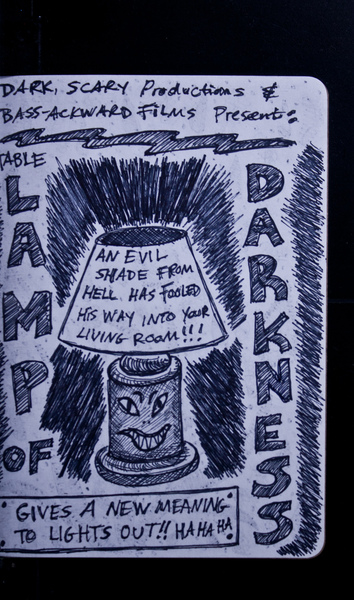 DARK, SCARY Productions &
BASS-ACKWARD FILMS Present:
TABLE
LAMP
OF
DARKNESS
AN EVIL
SHADE FROM
HELL HAS FOOLED
HIS WAY INTO YOUR
LIVING ROOM!!!
GIVES A NEW MEANING
TO LIGHTS OUT!! HA HA HA